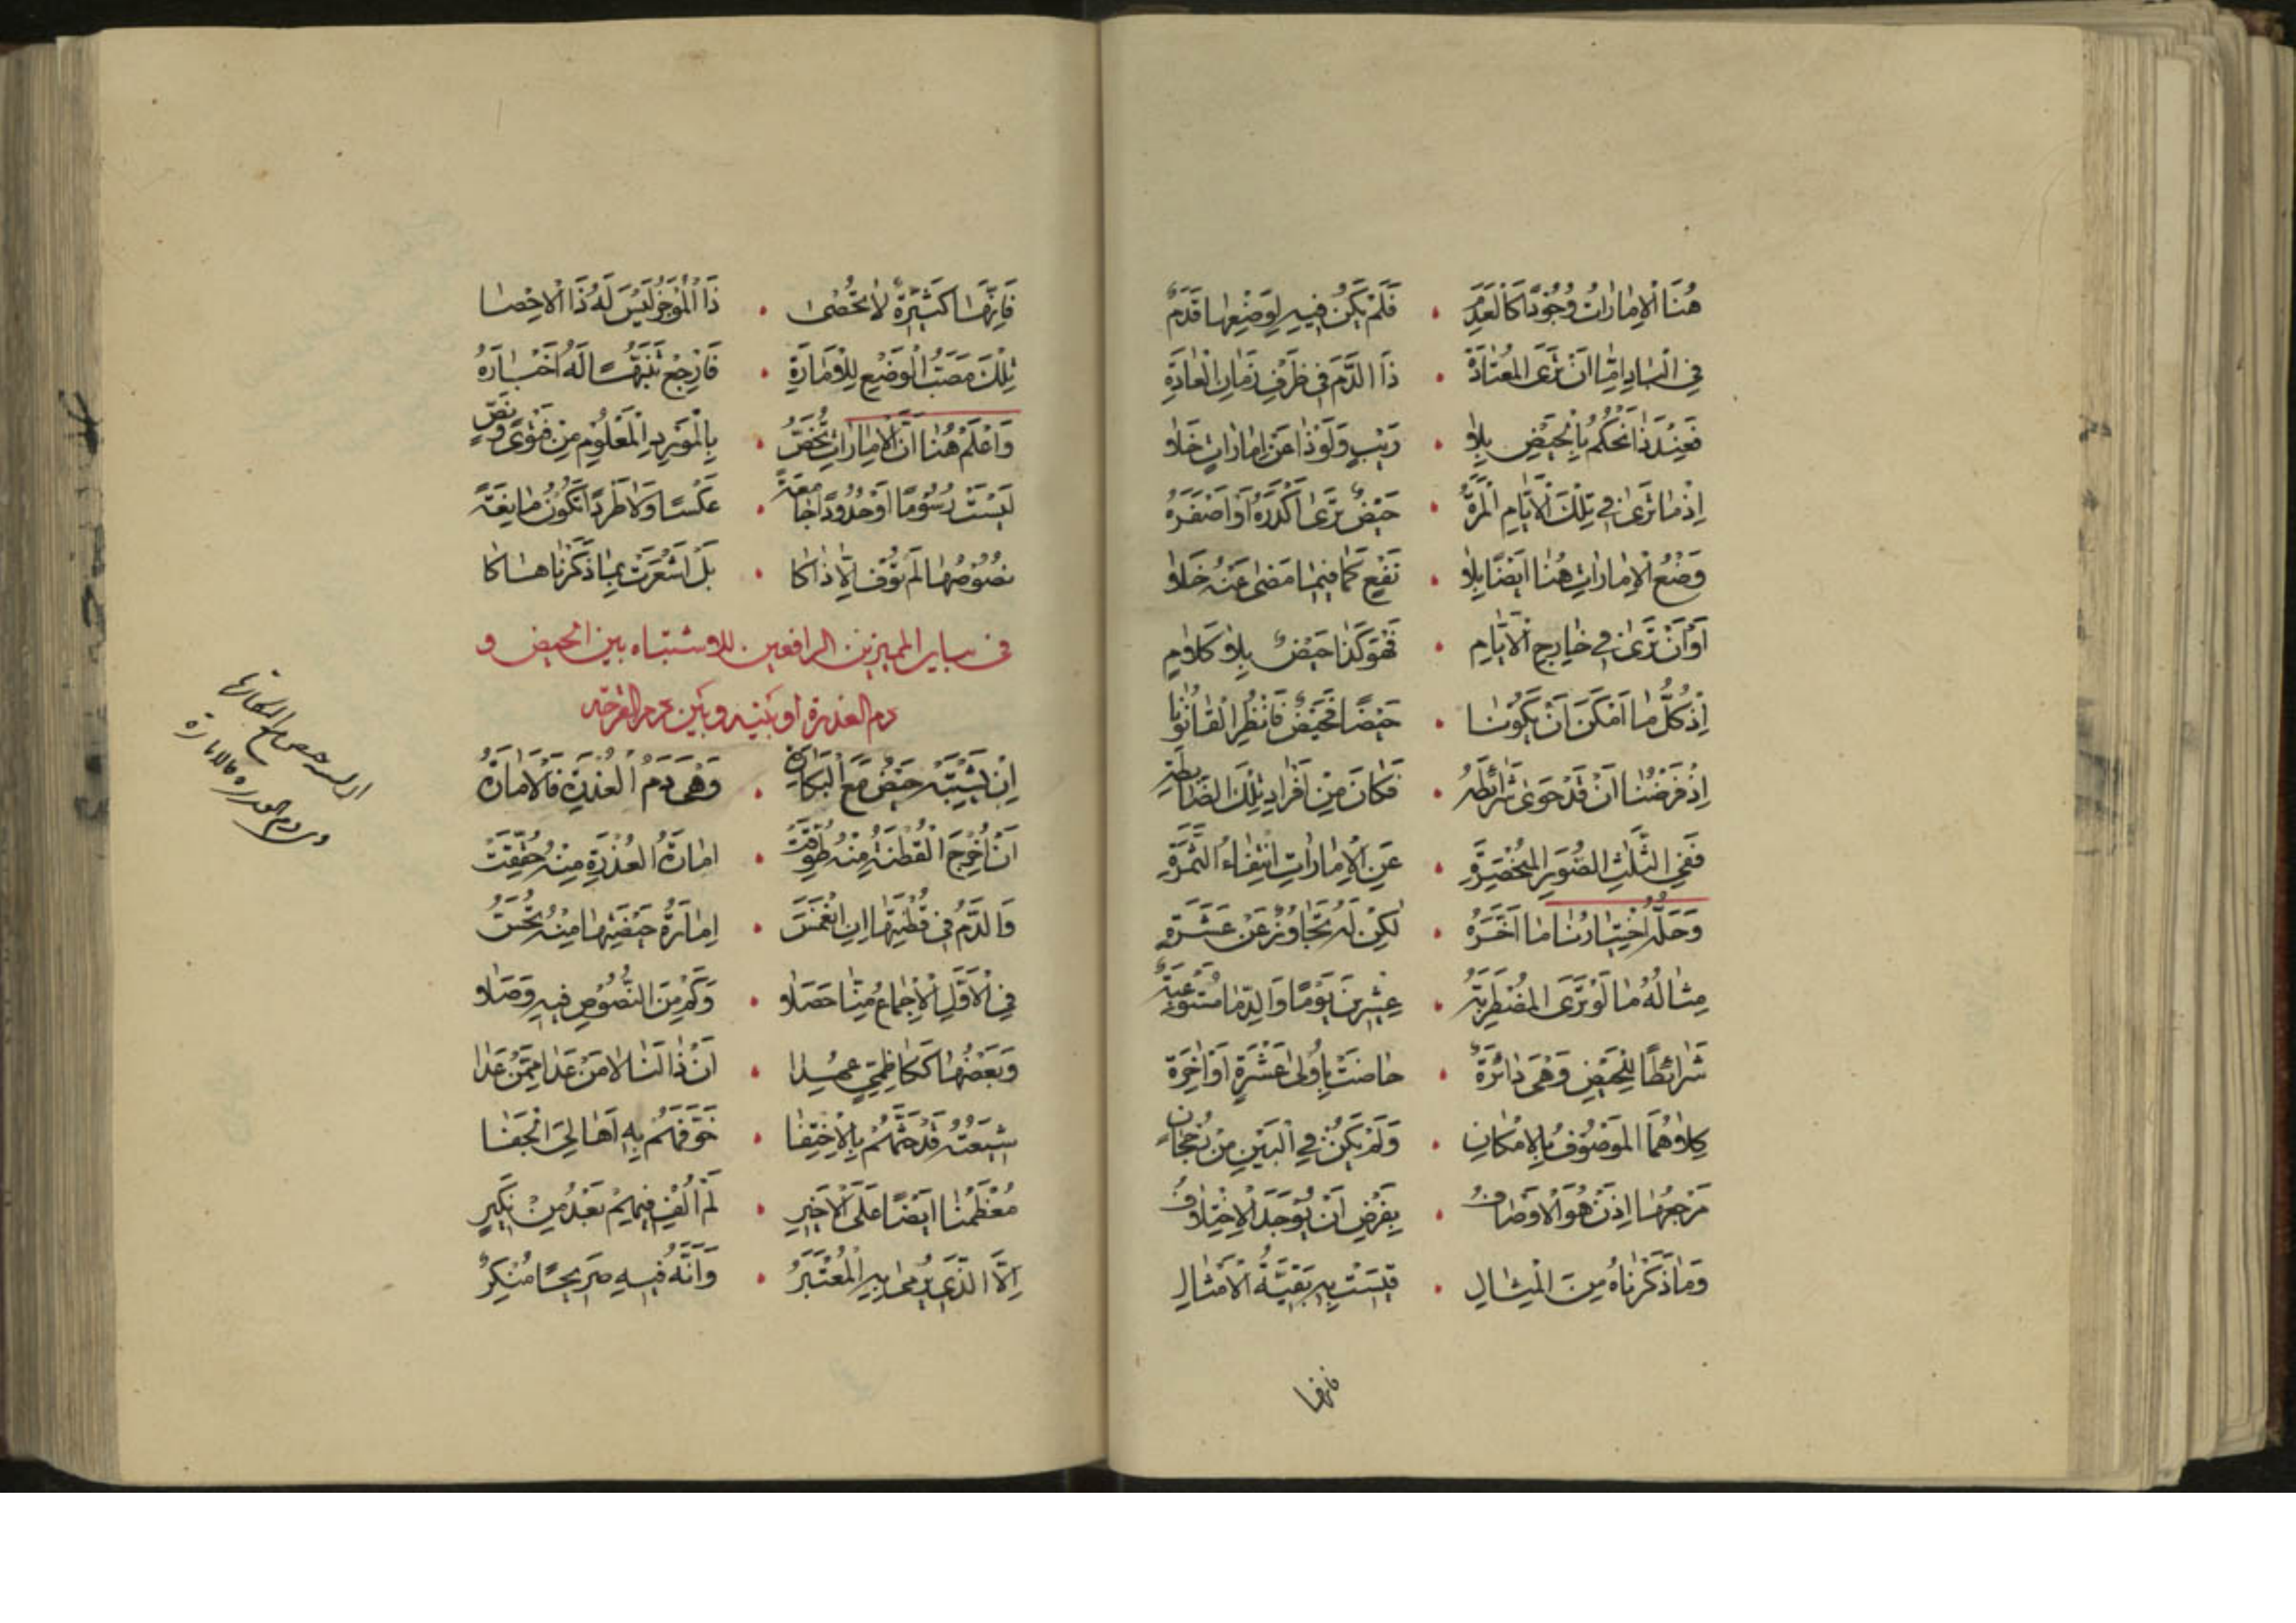 هُنَا الْاِمَارَاتُ وُجُودًا كَالْعَدَمِ • فَلَمْ يَكُنْ فِيهِ لِوَضْعِهَا قَدَمٌ
فِي الْبَادِ اِمَّا اَنْ تَرَى الْمُعْتَادَةُ • ذَا الدَّمَ فِى ظَرْفِ زَمَانِ الْعَادَةِ
فَعِنْدَنَا نَحْكُمُ بِالْحَيْضِ بِلَا • رَيْبٍ وَلَوْ ذَا عَنْ اِمَارَاتٍ خَلَا
اِذْ مَا تَرَى فِي تِلْكَ الْاَيَّامِ الْمَرْةُ • حَيْضٌ تَرَى اَكْدَرَهُ اَوْ اَصْفَرَهُ
وَضْعُ الْاِمَارَاتِ هُنَا اَيْضًا بِلَا • نَفْعٍ كَمَا فِيمَا مَضَى عَنْهُ خَلَا
اَوْ اَنْ تَرَى فِي خَارِجِ الْاَيَّامِ • فَهْوَ كَذَا حَيْضٌ بِلَا كَلَامٍ
اِذْ كُلُّ مَا اَمْكَنَ اَنْ يَكُونَا • حَيْضًا فَحَيْضٌ فَانْظُرِ الْقَانُونَا
اِذْ فَرَضْنَا اَنْ قَدْ حَوَى شَرَائِطَهُ • فَكَانَ مِنْ اَفْرَادِ تِلْكَ الضَّابِطَةِ
فَفِي الثَّلٰثِ الصُّوَرِ الْمُنْحَصِرَةِ • عَنِ الْاِمَارَاتِ انْتِفَاءُ الثَّمَرَةِ
وَحَلَّهُ اخْتِيَارُنَا مَا اَخَّرَهُ • لٰكِنْ لَهُ تَجَاوُزٌ عَنْ عَشَرَةٍ
مِثَالُهُ مَا لَوْ تَرَى الْمُضْطَرِبَةُ • عِشْرِينَ يَوْمًا وَالدِّمَا مُسْتَوْعِبَةٌ
شَرَائِطًا لِلْحَيْضِ وَهْىَ دَائِرَةٌ • حَاضَتْ بِاُولَى عَشْرَةٍ اَوْ اٰخِرَةٍ
كِلَاهُمَا الْمَوْصُوفُ بِالْاِمْكَانِ • وَلَمْ يَكُنْ فِي الْبَيْنِ مِنْ رُجْحَانٍ
مَرْجِعُهَا اِذَنْ هُوَ الْاَوْصَافُ • بِفَرْضِ اَنْ يُوْجَدَ الْاِخْتِلَافُ
وَمَا ذَكَرْنَاهُ مِنَ الْمِثَالِ • قِيسَتْ بِهِ بَقِيَّةُ الْاَمْثَالِ
فانها
فَاِنَّهَا كَثِيرَةٌ لَا تُحْصٰى • ذَا الْمُوجَزُ لَيْسَ لَهُ ذَا الْاِحْصَا
تِلْكَ مَصَبُّ الْوَضْعِ لِلْاَمَارَةِ • فَارْجِعْ تَنَبُّهًا لَهُ اَخْبَارَهُ
وَاعْلَمْ هُنَا اَنَّ الْاِمَارَاتِ تُخَصُّ • بِالْمَوْرِدِ الْمَعْلُومِ مِنْ فَتْوًى وَنَصٍّ
لَيْسَتْ رُسُومًا اَوْ حُدُودًا جَامِعَةً • عَكْسًا وَلَا طَرْدًا تَكُونُ مَانِعَةً
نُصُوصُهَا لَمْ تُوْفِ اِلَّا ذَاكَا • بَلْ اَشْعَرَتْ بِمَا ذَكَرْنَا هَاكَا
فى سائر المميزين الرافعين للاشتباه بين الحيض و
دم العذرة او بينه وبين دم القرحة
اِنْ يَشْتَبِهْ حَيْضٌ مَعَ الْبَكَارَةِ • وَهْىَ دَمُ الْعُذْرَةِ فَالْاَمَارَةُ
اَنْ اُخْرِجَ الْقُطْنَةُ مِنْهُ طُوِّقَتْ • اِمَارَةُ الْعُذْرَةِ مِنْهُ حُقِّقَتْ
وَالدَّمُ فِى قُطْنِهَا اِنِ انْغَمَسَ • اِمَارَةُ حَيْضِهَا مِنْهُ تُحَسُّ
فِي الْاَوَّلِ الْاِجْمَاعُ مِنَّا حَصَلَا • وَكَمْ مِنَ النُّصُوصِ فِيهِ وَصَلَا
وَبَعْضُهَا كَكَاظِمِيٍّ عُهِدَا • اَنْ ذَا لَنَا لَا مَنْ عَدَا مِمَّنْ عَدَا
شِيعَتُهُ قَدْ حَثَّهُمْ بِالْاِخْتِفَا • خَوَّفَهُمْ بِهِ اَهَالِىَ الْجَفَا
مُعْظَمُنَا اَيْضًا عَلَى الْاَخِيرِ • لَمْ اُلْفِ فِيهِمْ بَعْدُ مِنْ نَكِيرٍ
اِلَّا الَّذِى يُرْمٰى بِهِ الْمُعْتَبَرُ • وَاَنَّهُ فِيهِ صَرِيحًا مُنْكِرٌ